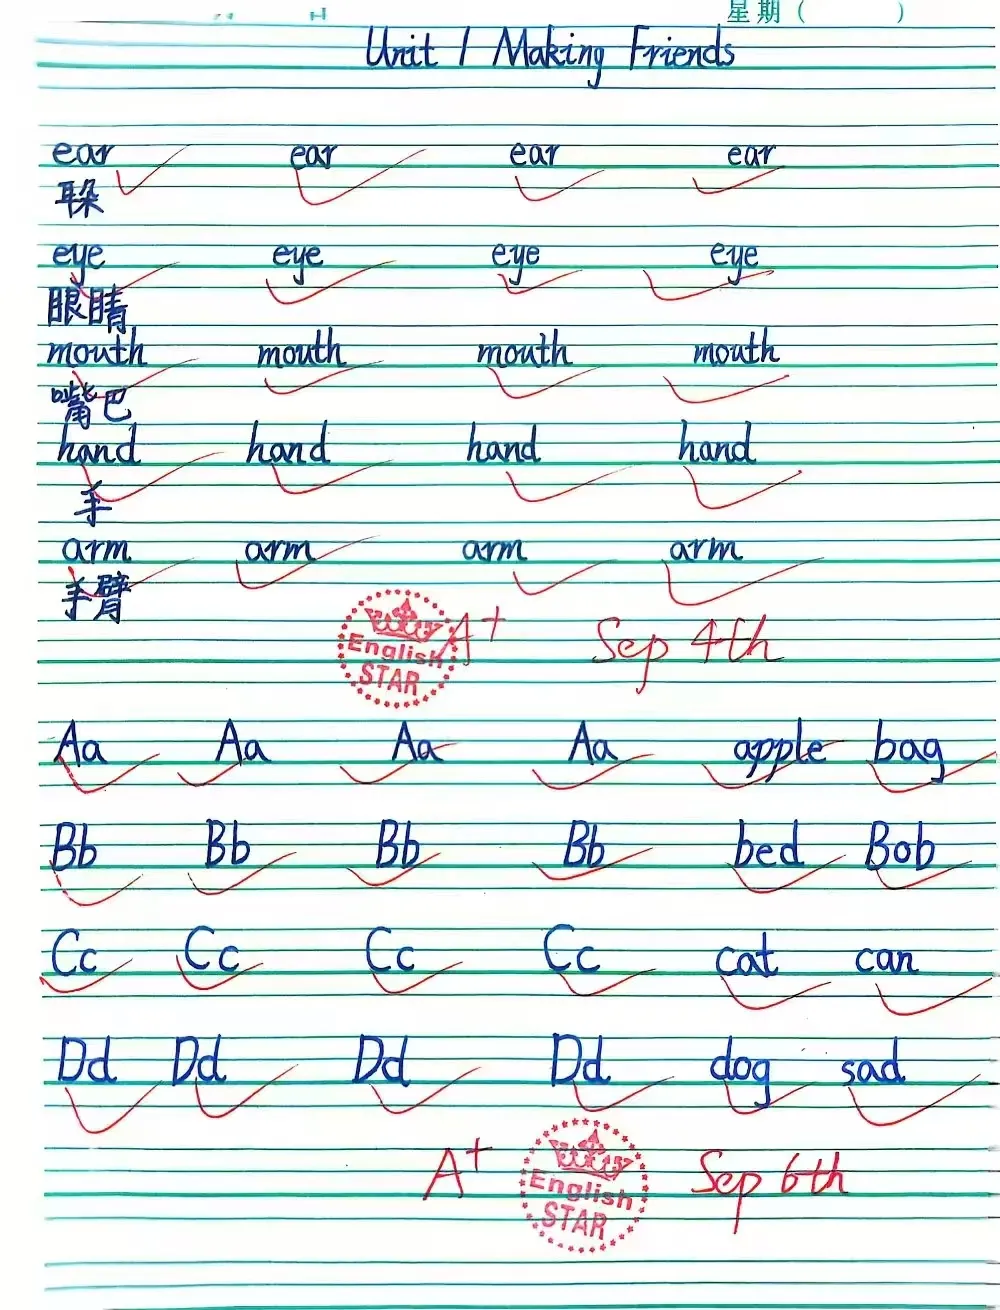 星期（ ）
Unit 1 Making Friends
ear ear ear ear
耳朵
eye eye eye eye
眼睛
mouth mouth mouth mouth
嘴巴
hand hand hand hand
手
arm arm arm arm
手臂
English STAR A+ Sep 4th
Aa Aa Aa Aa apple bag
Bb Bb Bb Bb bed Bob
Cc Cc Cc Cc cat can
Dd Dd Dd Dd dog sad
A+ English STAR Sep 6th